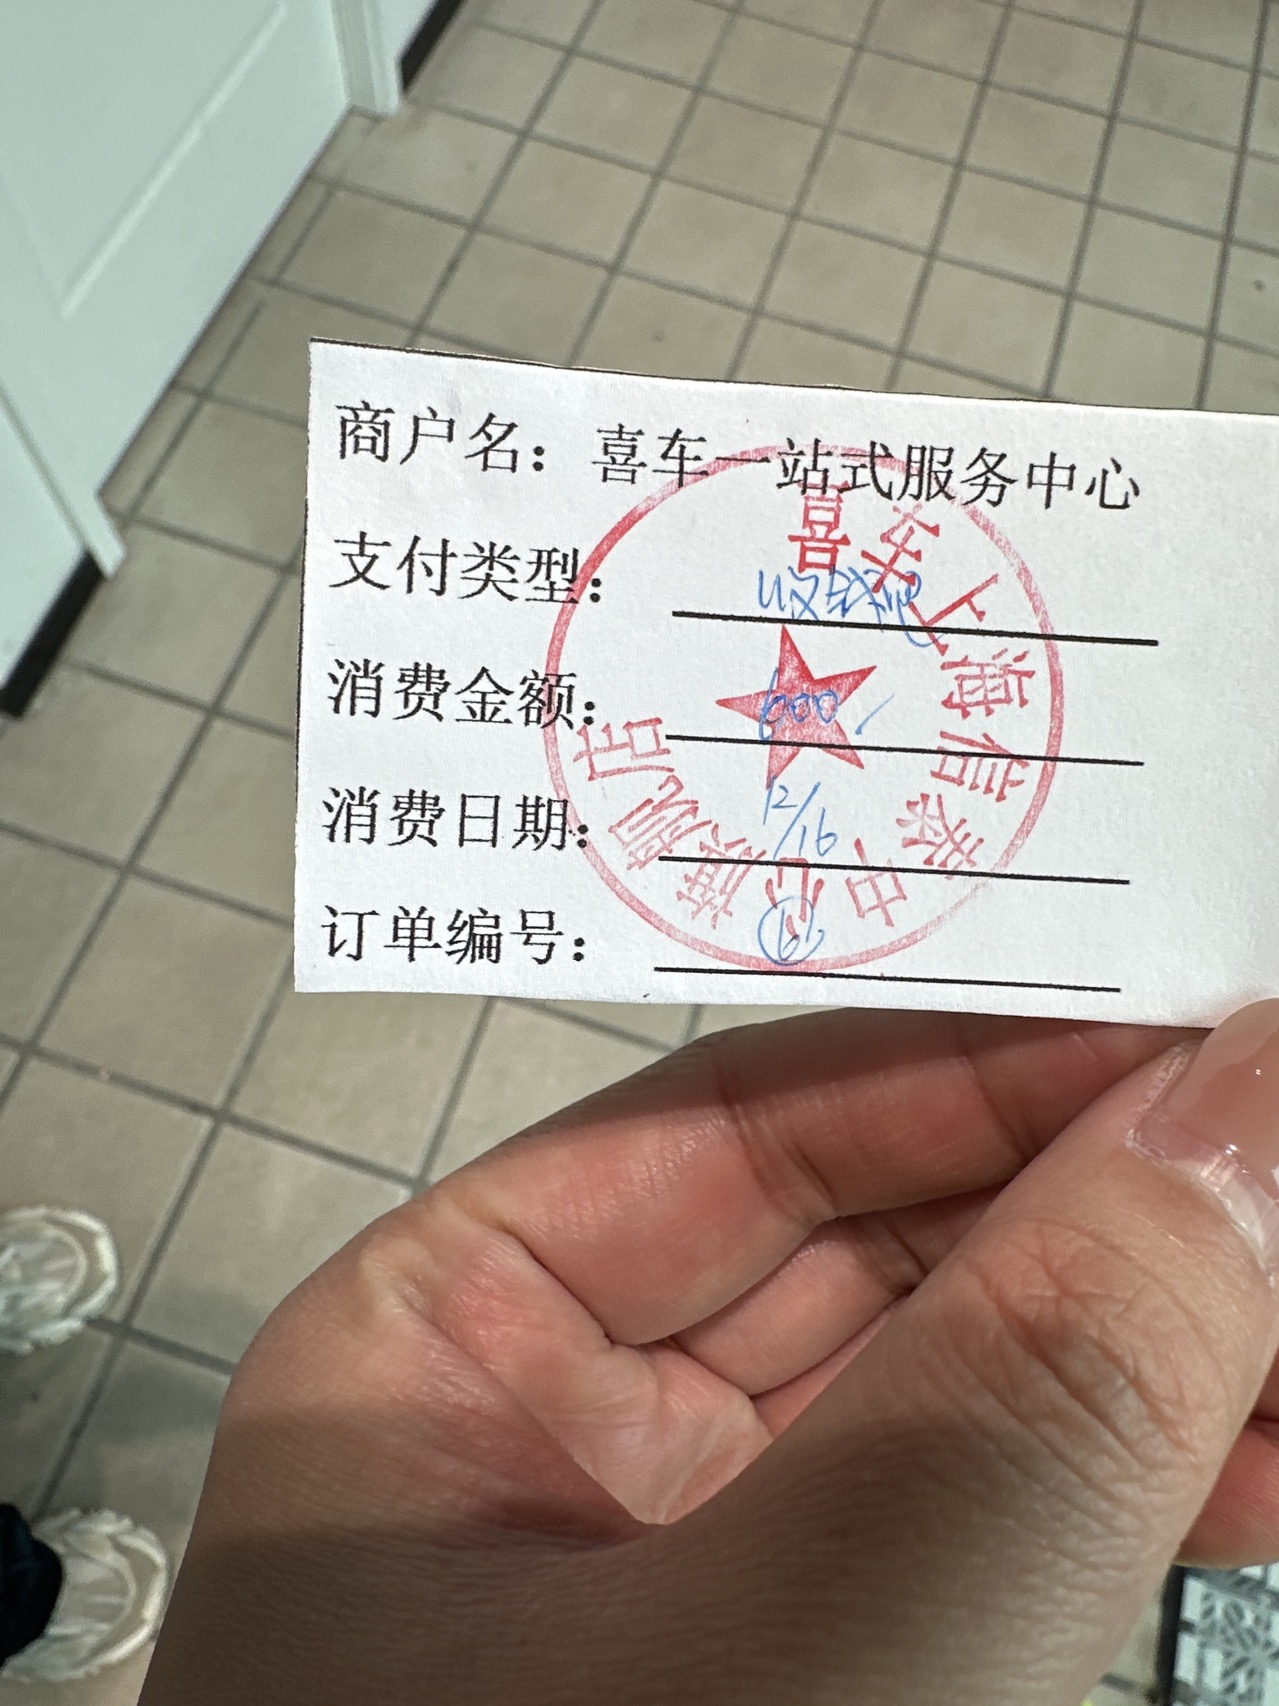 商户名：喜车一站式服务中心
支付类型：收钱吧
消费金额：600/
消费日期：12/16
订单编号：⑥
喜车上海信泰中心旗舰店